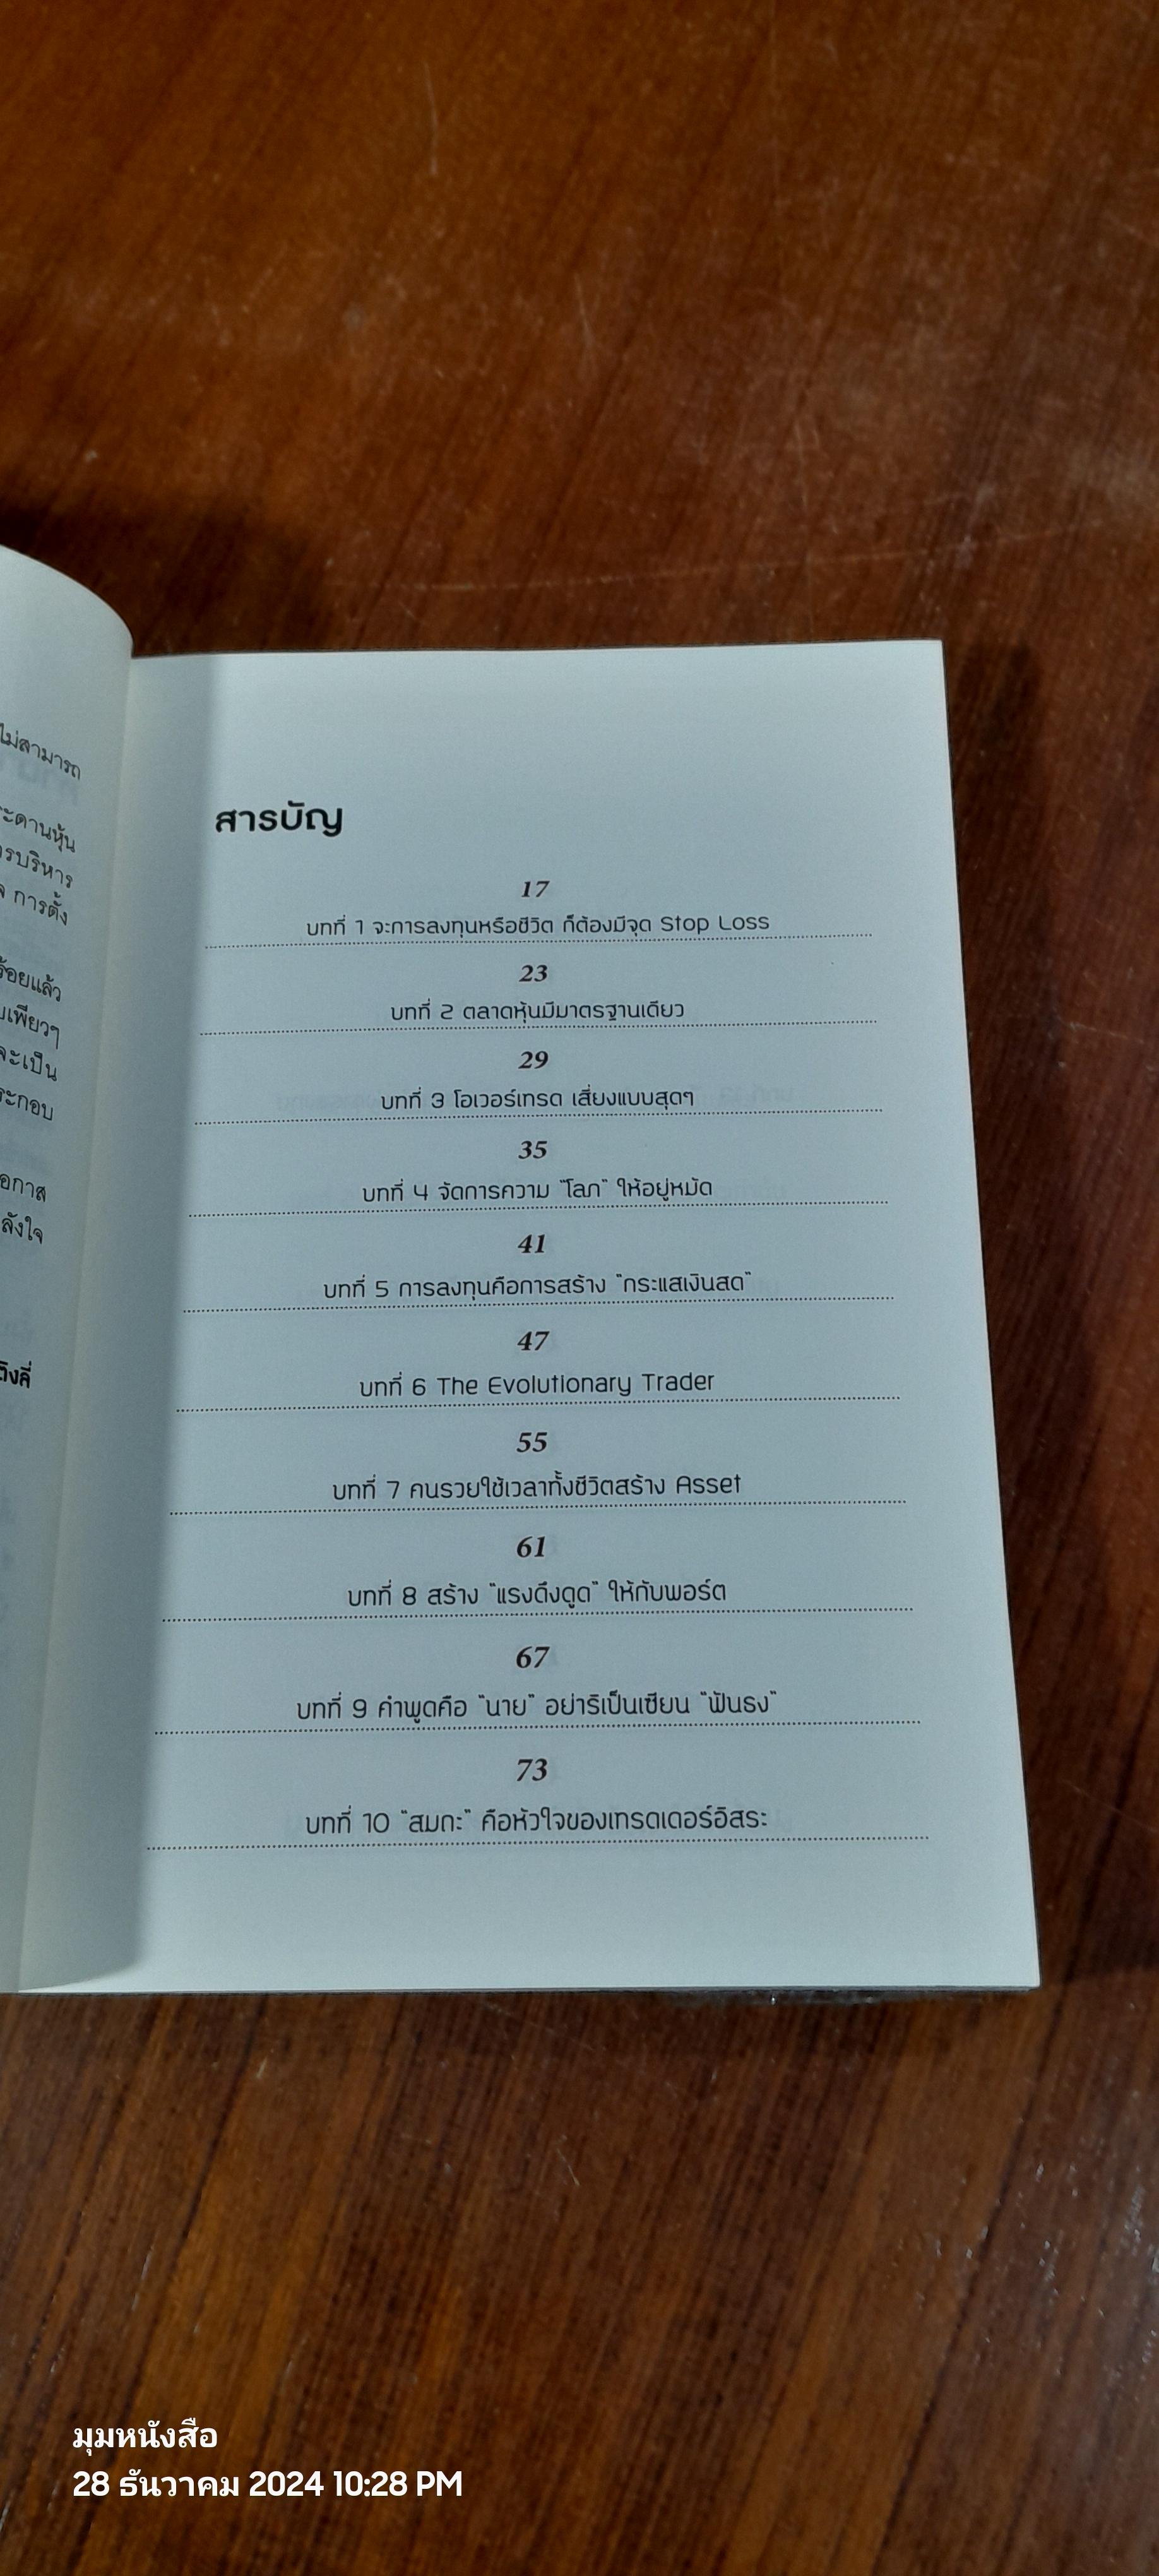 ไม่สามารถ
ระดานหุ้น
ารบริหาร
การตั้ง
ร้อยแล้ว
เพียวๆ
จะเป็น
ระกอบ
อกาส
ลังใจ
ติงลี่
สารบัญ
17
บทที่ 1 จะการลงทุนหรือชีวิต ก็ต้องมีจุด Stop Loss
23
บทที่ 2 ตลาดหุ้นมีมาตรฐานเดียว
29
บทที่ 3 โอเวอร์เทรด เสี่ยงแบบสุดๆ
35
บทที่ 4 จัดการความ "โลภ" ให้อยู่หมัด
41
บทที่ 5 การลงทุนคือการสร้าง "กระแสเงินสด"
47
บทที่ 6 The Evolutionary Trader
55
บทที่ 7 คนรวยใช้เวลาทั้งชีวิตสร้าง Asset
61
บทที่ 8 สร้าง "แรงดึงดูด" ให้กับพอร์ต
67
บทที่ 9 คำพูดคือ "นาย" อย่าริเป็นเซียน "ฟันธง"
73
บทที่ 10 "สมถะ" คือหัวใจของเทรดเดอร์อิสระ
มุมหนังสือ
28 ธันวาคม 2024 10:28 PM